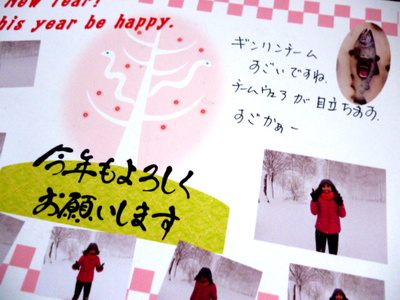 New Year!
his year be happy.
ギンリンチーム
すごいですね。
チームウェアが目立ちます。
すごかぁー
今年もよろしく
お願いします